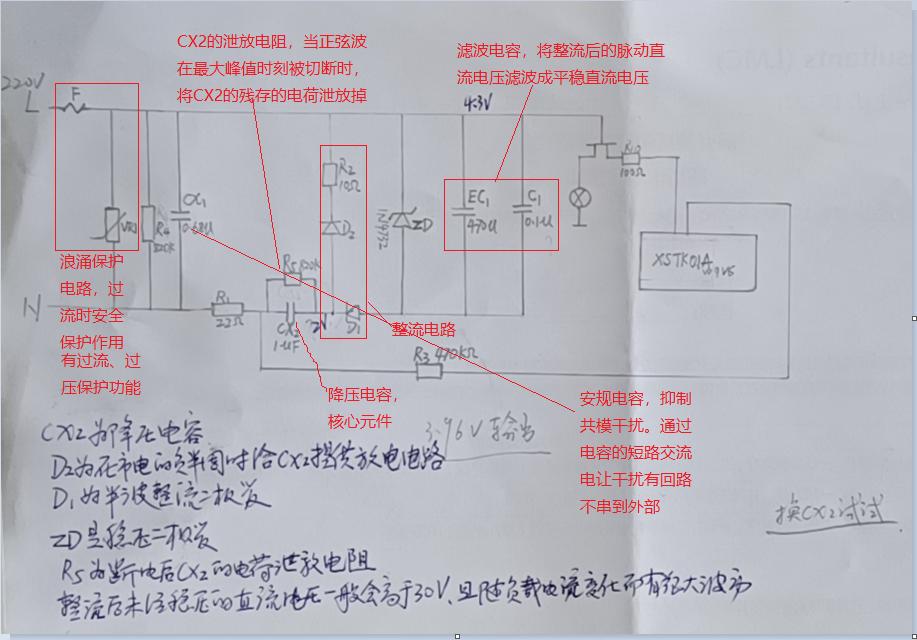 CX2的泄放电阻，当正弦波
在最大峰值时刻被切断时，
将CX2的残存的电荷泄放掉
滤波电容，将整流后的脉动直
流电压滤波成平稳直流电压
220V
L
F
4.3V
R10
100Ω
R2
10Ω
D2
ZD
EC1
470u
C1
0.1u
CX1
0.68u
R4
XSTK01A
浪涌保护
电路，过
流时安全
保护作用
有过流、过
压保护功能
N
R1
22Ω
R5
CX2
1uF
D1
整流电路
R3 470kΩ
降压电容，
核心元件
安规电容，抑制
共模干扰。通过
电容的短路交流
电让干扰有回路
不串到外部
3.96V 输出
换CX2试试
CX2为降压电容
D2为在市电的负半周时给CX2提供放电电路
D1为半波整流二极管
ZD是稳压二极管
R5为断电后CX2的电荷泄放电阻
整流后未经稳压的直流电压一般会高于30V，且随负载电流变化而有很大波动